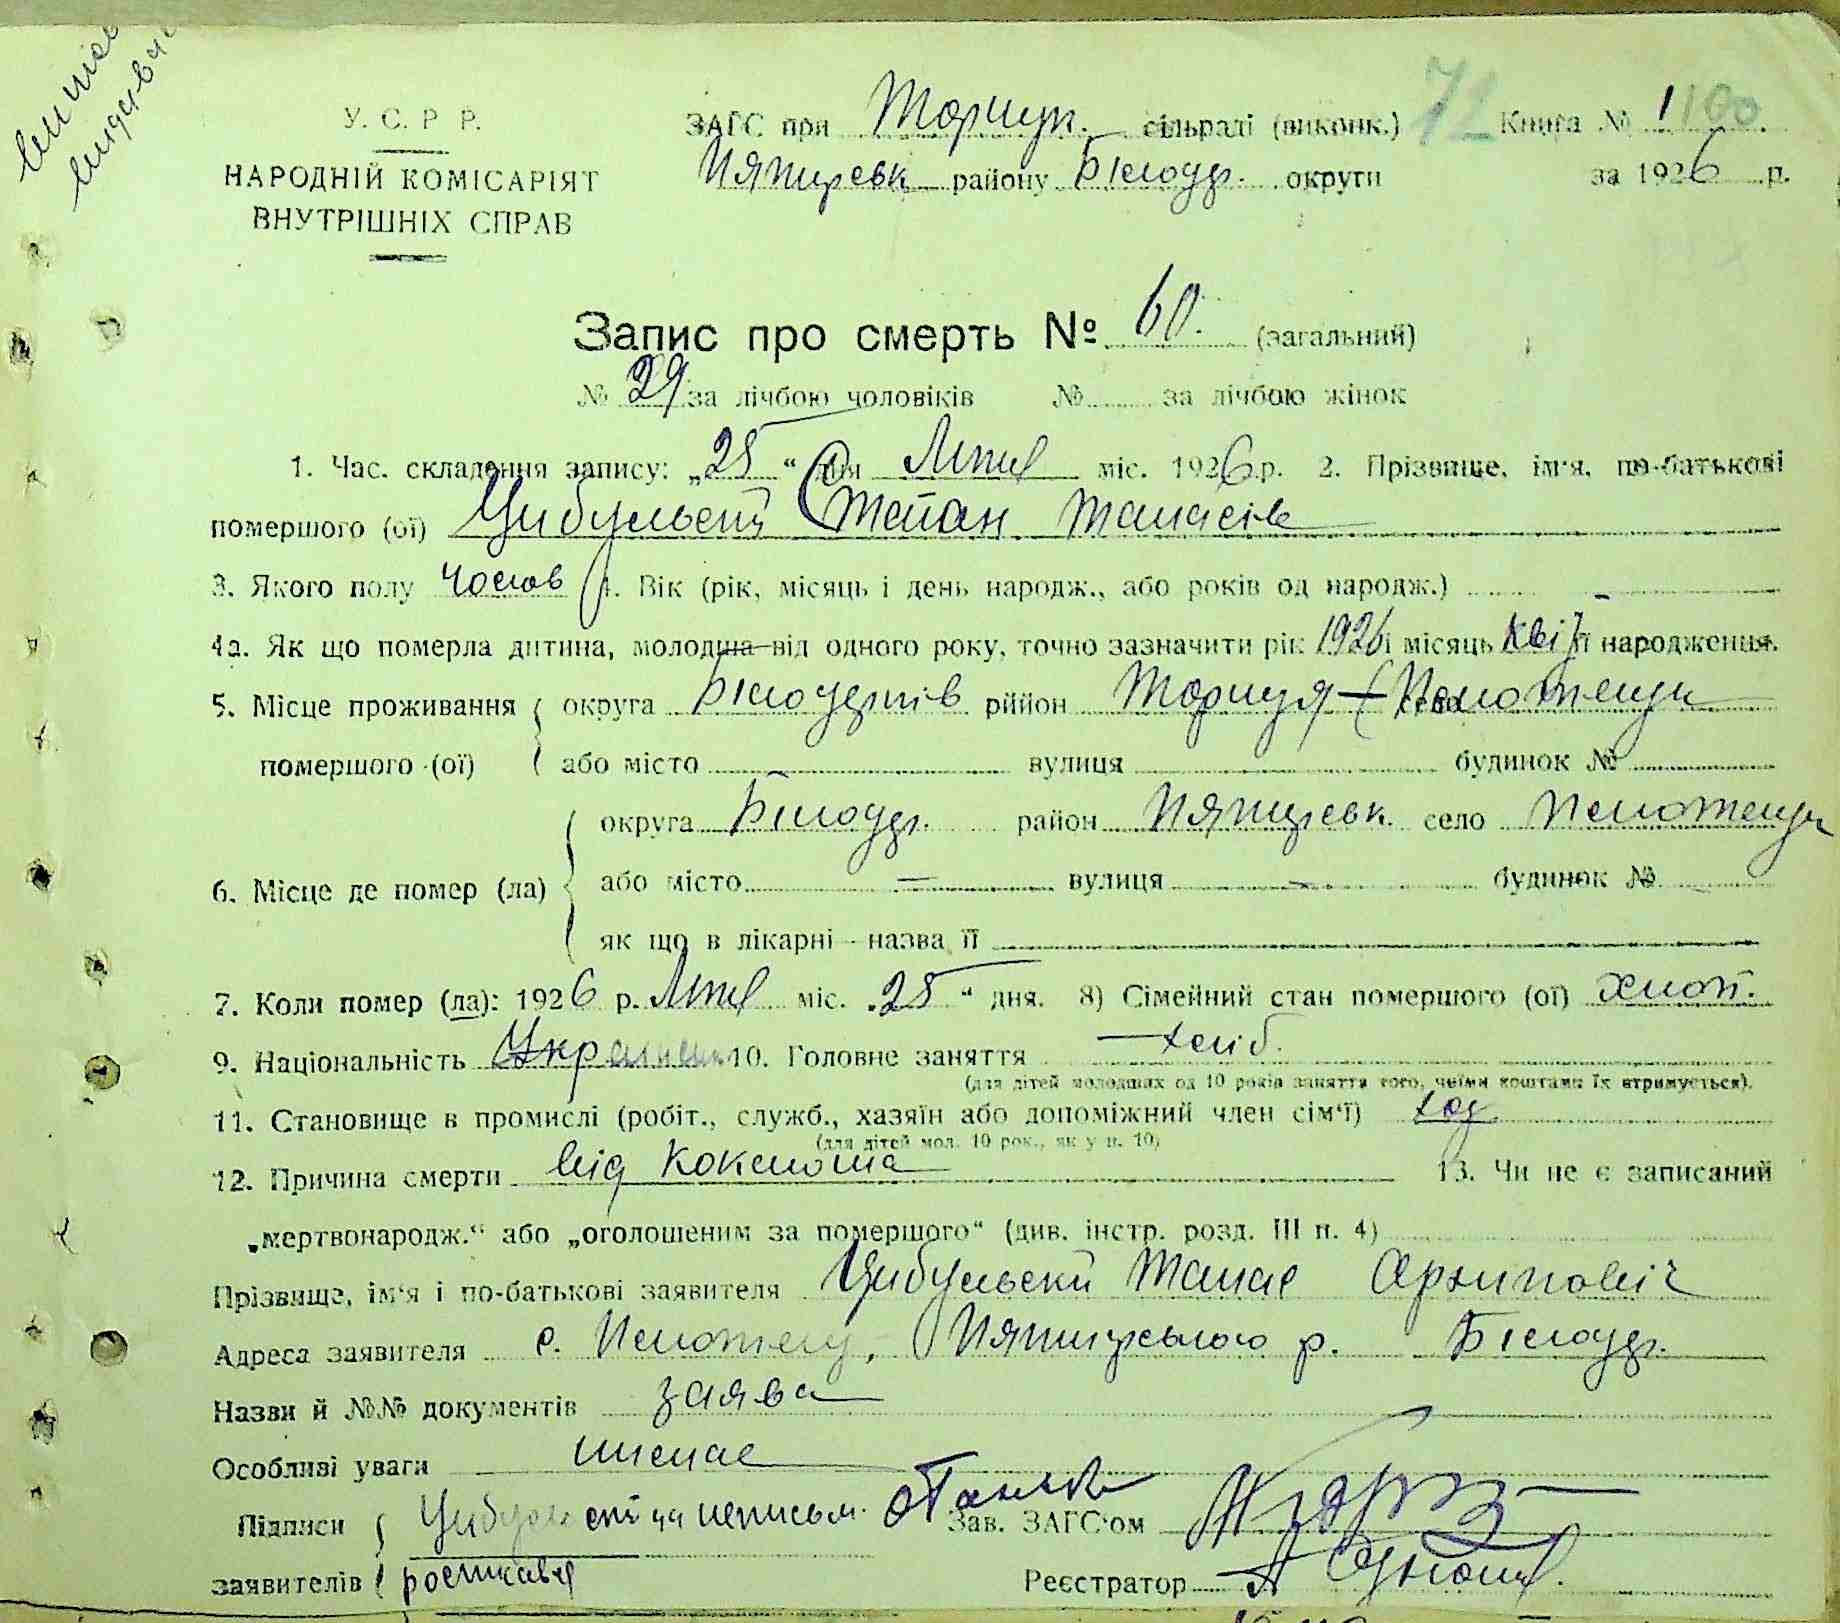 У. С. Р. Р.
НАРОДНІЙ КОМІСАРІЯТ
ВНУТРІШНІХ СПРАВ
ЗАГС при сільраді (виконк.) 72 Книга № 1 100
району Білоцер. округи за 1926 р.
Запис про смерть № 60. (загальний)
№ 29 за лічбою чоловіків № за лічбою жінок
1. Час. складення запису: „25“ дня Липця міс. 1926 р. 2. Прізвище, ім'я, по-батькові
помершого (ої) Цибульський Степан Танасів
3. Якого полу Чолов 4. Вік (рік, місяць і день народж., або років од народж.) –
4а. Як що померла дитина, молодша від одного року, точно зазначити рік 1926 і місяць Кві її народження.
5. Місце проживання округа Білоцерків рййон село
помершого (ої) або місто вулиця будинок №
округа Білоцер. район село
6. Місце де помер (ла) або місто — вулиця – будинок №
як що в лікарні - назва її
7. Коли помер (ла): 1926 р. Липця міс. „25“ дня. 8) Сімейний стан помершого (ої) хлоп.
9. Національність Українець 10. Головне заняття — хліб.
(для дітей молодших од 10 років заняття того, чиїми коштами їх втримується).
11. Становище в промислі (робіт., служб., хазяїн або допоміжний член сім'ї) хаз
(для дітей мол. 10 рок., як у п. 10)
12. Причина смерти від коклюша 13. Чи не є записаний
„мертвонародж.“ або „оголошеним за помершого“ (див. інстр. розд. III п. 4)
Прізвище, ім'я і по-батькові заявителя Цибульский Танас Архипович
Адреса заявителя с. р. Білоцер.
Назви й №№ документів заява
Особливі уваги немає
Підписи Цибульский неписьм. Зав. ЗАГС'ом
заявителів росписався Реєстратор